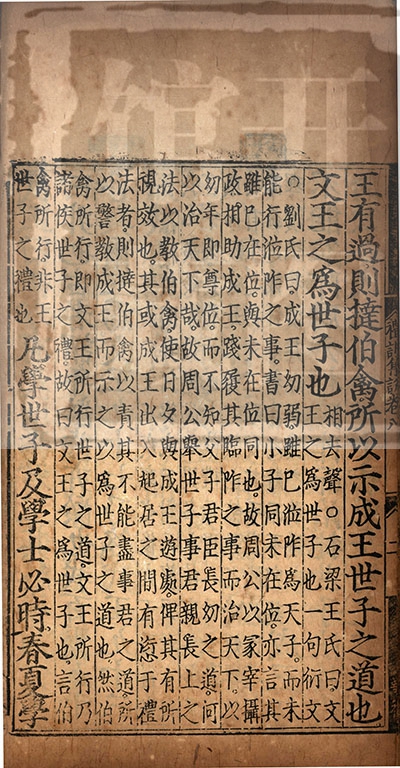 禮記集說卷八
二
王有過則撻伯禽所以示成王世子之道也
文王之爲世子也
相去聲○石梁王氏曰文
王之爲世子也一句衍文
○劉氏曰成王幼弱雖已涖阼爲天子而未
能行涖阼之事書曰小子同未在位亦言其
雖已在位與未在位同也故周公以冢宰攝
政相助成王踐履其臨阼之事而治天下以
幼年即尊位而不知父子君臣長幼之道何
以治天下哉故周公舉世子事君親長上之
法以教伯禽使日夕與成王遊處俾其有所
視效也其或成王出入起居之間有愆于禮
法者則撻伯禽以責其不能盡事君之道所
以警教成王而示之以爲世子之道也然伯
禽所行即文王所行世子之道文王所行乃
諸侯世子之禮故曰文王之爲世子也言伯
禽所行非王
世子之禮也
凡學世子及學士必時春夏學